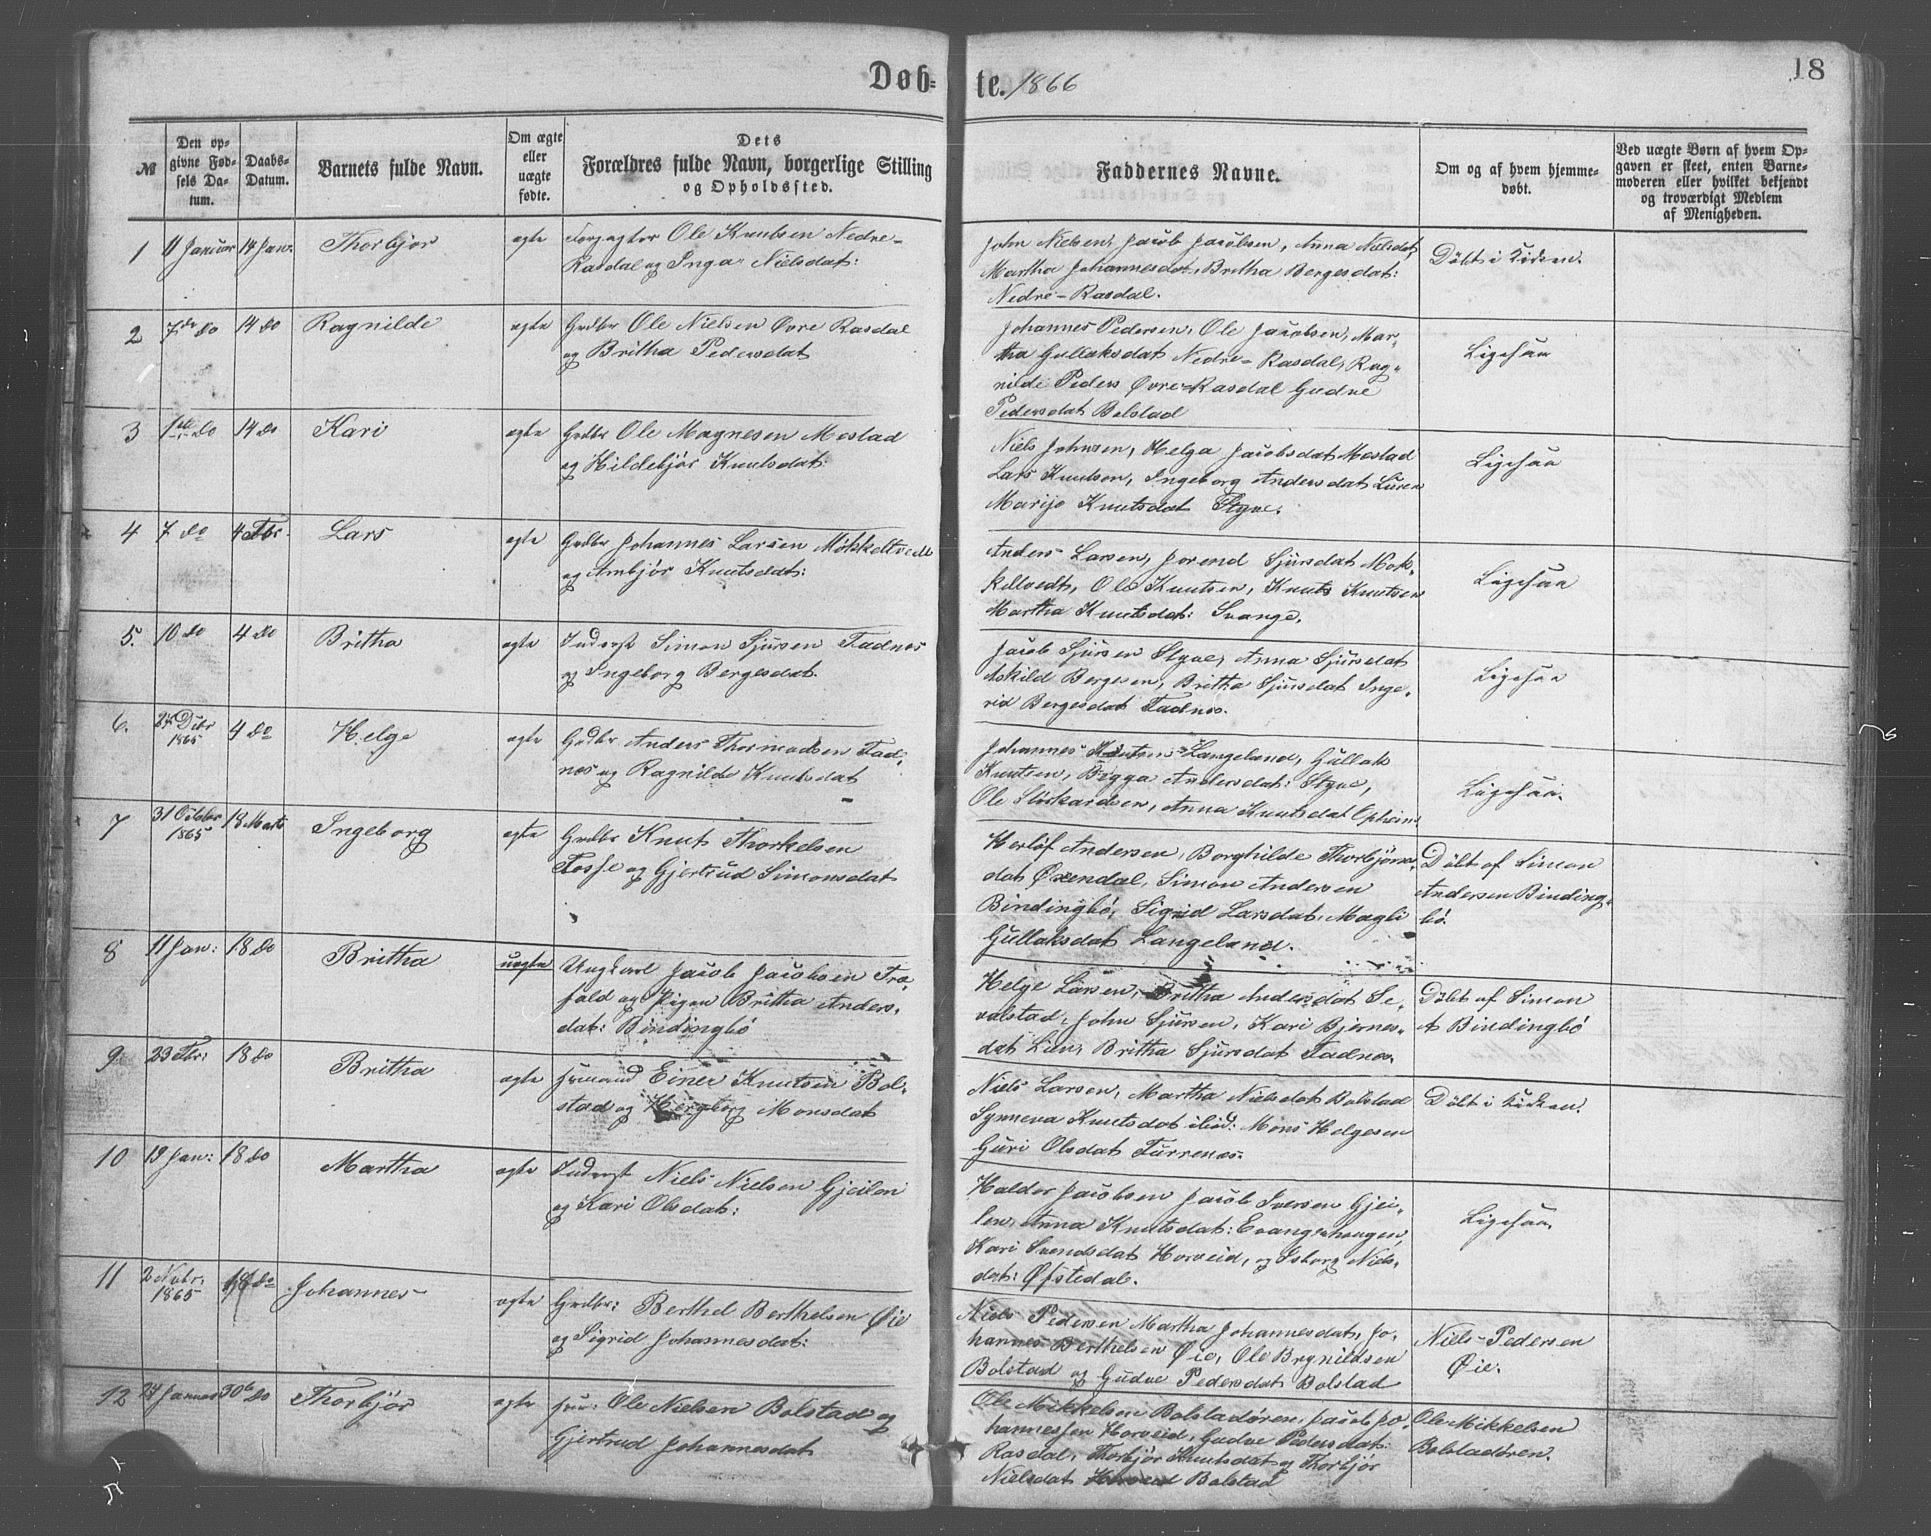 Døb-te. 1866
18
№
Den opgivne Fødsels Datum.
Daabs-Datum.
Barnets fulde Navn.
Om ægte eller uægte fødte.
Dets Forældres fulde Navn, borgerlige Stilling og Opholdssted.
Faddernes Navne.
Om og af hvem hjemmedøbt.
Ved uægte Børn af hvem Opgaven er skeet, enten Barnemoderen eller hvilket bekjendt og troværdigt Medlem af Menigheden.
1 11 Januar 14 Jan: Thorbjor ægte
Forpagter Ole Knutsen Nedre-
Rasdal og Inga Nielsdat:
John Nielsen, Jacob Jacobsen, Anna Nielsdat,
Martha Johannesdat, Britha Bergesdat:
Nedre-Rasdal.
Døbt i Kirken.
2 7de do 14 do Ragnilde ægte
Grdbr Ole Nielsen Øvre Rasdal
og Britha Pedersdat
Johannes Pedersen, Ole Jacobsen, Mar-
tha Gullaksdat Nedre-Rasdal, Rag-
nilde Peders Øvre Rasdal Gudve
Pedersdat Bolstad
Ligesaa
3 1ste do 14 do Kari ægte
Grdbr Ole Magnesen Mestad
og Hildebjør Knutsdat:
Niels Johnsen, Helga Jacobsdat Mestad
Lars Knutsen, Ingeborg Andersdat Luren
Marijo Knutsdat Styve.
Ligesaa
4 7 do 4 Fbr. Lars ægte
Grdbr Johannes Larsen Møkkeltvedt
og Ambjør Knutsdat:
Anders Larsen, Jorend Sjursdat Møk-
keltvedt, Ole Knutsen, Knut Knutsen
Martha Knutsdat: Evange.
Ligesaa
5. 10 do 4 do Britha ægte
Inderst Simon Sjursen Fadnes
og Ingeborg Bergesdat.
Jacob Sjursen Styve, Anna Sjursdat
Askild Bergesen, Britha Sjursdat Inge-
rid Bergesdat Fadnes.
Ligesaa
6. 24 Dcbr 1865 4 do Helge ægte
Grdbr Anders Thormodsen Fad-
nes og Ragnilde Knutsdat
Johannes Knutsen Langeland, Gullak
Knutsen, Brygga Andersdat: Styve,
Ole Anna Knutsdat Opheim
Ligesaa.
7 31 October 1865 18 Marts Ingeborg ægte
Grdbr Knut Thorkelsen
Fosse og Gjertrud Simonsdat
Herlöf Andersen, Borghilde Thorbjørns-
dat Øxendal, Simon Andersen
Bindingbø, Sigrid Larsdat, Magli
Gullaksdat Langeland.
Døbt af Simon
Andersen Binding-
bø
8 11 Jan: 18 do Britha uægte
Ungkarl Jacob Jacobsen Træ-
fald og Pigen Britha Anders-
dat: Bindingbø
Helge Larsen, Britha Andersdat Se-
valstad, John Sjursen, Kari Bjernes-
dat Lien, Britha Sjursdat Fadnes.
Døbt af Simon
A Bindingbø
9 23 Fbr: 18 do Britha ægte
Husmand Einer Knutsen Bol-
stad og Hergborg Monsdat
Niels Larsen, Martha Nielsdat Bolstad
Synneva Knutsdat ibid: Mons Helgesen
Guri Olsdat Furrenes.
Døbt i Kirken.
10 19 Jan: 18 do Martha ægte
Inderst Niels Nielsen Gjeilen
og Kari Olsdat:
Haldor Jacobsen Jacob Iversen Gjei-
len, Anna Knutsdat: Evangerhougen,
Kari Svendsdat Horveid, og Isborg Niels-
dat: Øfstedal.
Ligesaa.
11 2 Nvbr. 1865 18 do Johannes ægte
Grdbr: Berthel Berthelsen Øie
og Sigrid Johannesdat:
Niels Pedersen Martha Johannesdat, Jo-
hannes Berthelsen Øie, Ole Brynildsen
Bolstad og Gudve Pedersdat Bolstad
Niels Pedersen
Øie.
12 27 Januar 30te do Thorbjør ægte
Ole Nielsen Bolstad og
Gjertrud Johannesdat
Ole Mikkelsen Bolstadøren, Jacob Jo-
hannessen Horveid, Gudve Pedersdat:
Rasdal, Thorbjør Knutsdat og Thorbjør
Nielsdat Bolstad
Ole Mikkelsen
Bolstadøren.